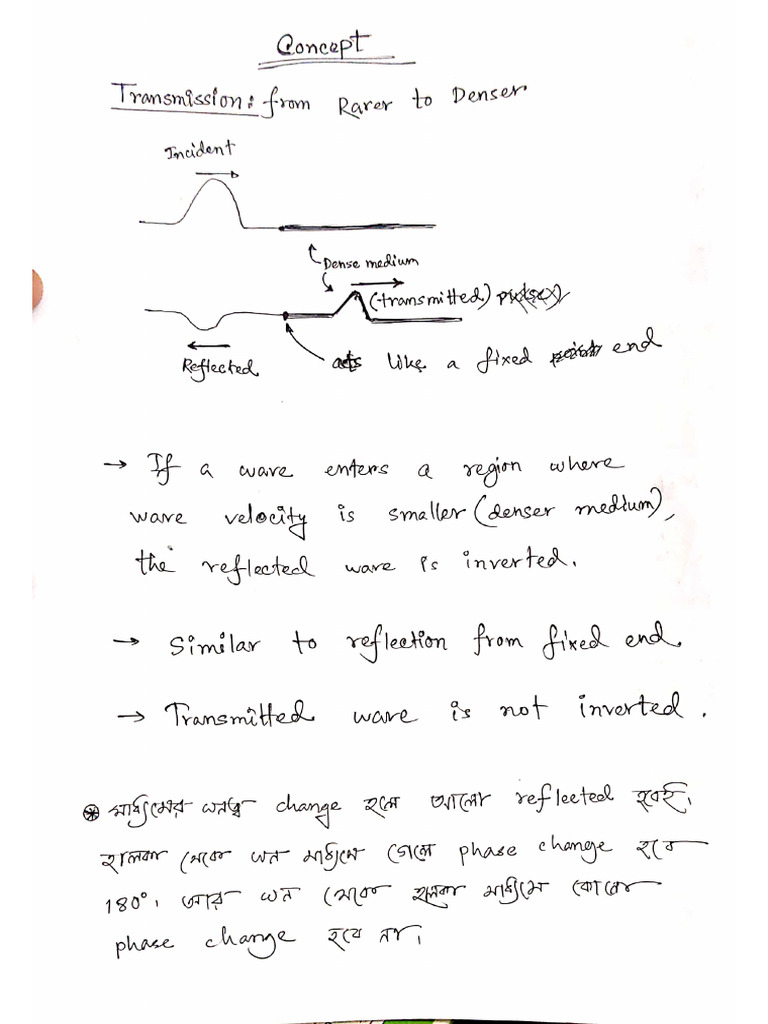 Concept
Transmission: from Rarer to Denser
Incident
Dense medium
(transmitted)
Reflected
acts like a fixed end
→ If a wave enters a region where
wave velocity is smaller (denser medium),
the reflected wave is inverted.
→ Similar to reflection from fixed end.
→ Transmitted wave is not inverted.
⊛ মাধ্যমের ঘনত্ব change হলে আলো reflected হবেই।
হালকা থেকে ঘন মাধ্যমে গেলে phase change হবে
180°। আর ঘন থেকে হালকা মাধ্যমে কোনো
phase change হবে না।